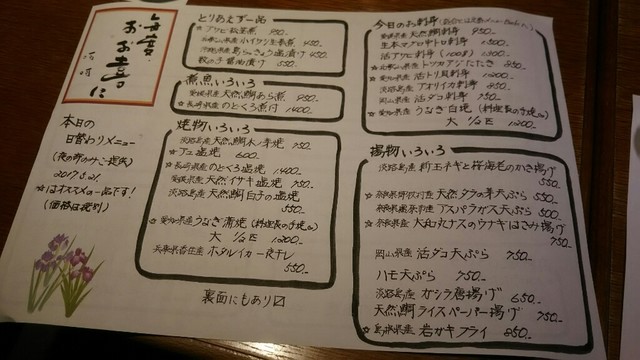 毎度
おお喜に
本日の
日替わりメニュー
(夜の部のみご提供)
☆はオススメの一品です!
(価格は税別)
とりあえず一品
450-
沖縄県産 島らっきょう塩漬け 450-
数の子醤油漬け 550-
煮魚いろいろ
愛媛県産 天然鯛あら煮 950-
☆長崎県産 のどくろ煮付 1400-
焼物いろいろ
淡路島産 天然鯛木ノ芽焼 750-
☆アユ塩焼 600-
長崎県産 のどくろ塩焼 1,400-
愛媛県産 天然イサキ塩焼 750-
淡路島産 天然鯛白子の塩焼
550-
☆愛知県産 うなぎ蒲焼 (料理長の手焼き)
大 1/2 1,200-
兵庫県香住産 ホタルイカ一夜干し
550-
裏面にもあり
今日のお刺身
愛媛県産 天然鯛刺身 950-
生本マグロ中トロ刺身 1,500-
活アワビ刺身 (100g) 1,300-
活トリ貝刺身 1,200-
淡路島産 アオリイカ刺身 850-
岡山県産 活ダコ刺身 750-
☆愛知県産 うなぎ白焼 (料理長の手焼き)
大 1/2 1,200-
揚物いろいろ
淡路島産 新玉ネギと桜海老のかき揚げ
550-
☆奈良県野迫川産 天然タラの芽天ぷら 550-
アスパラガス天ぷら 500-
☆奈良県産 大和丸ナスのウナギはさみ揚げ
750-
岡山県産 活ダコ天ぷら 750-
ハモ天ぷら 750-
淡路島産 ガシラ唐揚げ 650-
天然鯛ライスペーパー揚げ 750-
☆島根県産 岩ガキフライ 850-